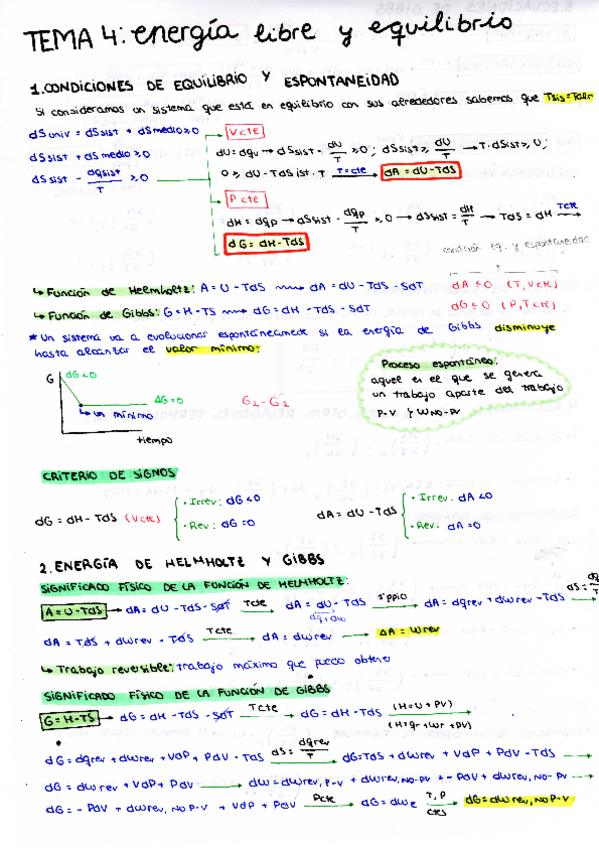 TEMA 4: energía libre y equilibrio
1. CONDICIONES DE EQUILIBRIO Y ESPONTANEIDAD
Si consideramos un sistema que está en equilibrio con sus alrededores sabemos que Tsis=Talr
dS univ = dSsist + dSmedio ≥ 0
V cte
dS sist + dS medio ≥ 0
dU = dqv → dSsist - dU/T ≥ 0 ; dSsist ≥ dU/T → T·dSist ≥ U;
dS sist - dqsist/T ≥ 0
0 ≥ dU - TdSist·T T=cte dA = dU-TdS
P cte
dH = dqp → dSsist - dqp/T ≥ 0 → dSsist = dH/T → TdS = dH Tcte
dG = dH-TdS
condición eq. y espontaneidad
↳ Función de Helmholtz: A = U - TdS → dA = dU - TdS - SdT dA ≤ 0 (T,Vcte)
↳ Función de Gibbs: G = H - TS → dG = dH - TdS - SdT dG ≤ 0 (P,Tcte)
* Un sistema va a evolucionar espontáneamente si la energía de Gibbs disminuye
hasta alcanzar el valor mínimo:
G
dG<0
ΔG = 0
↳ un mínimo
tiempo
G2 - G1
Proceso espontáneo:
aquel en el que se genera
un trabajo aparte del trabajo
P-V } WNO-PV
CRITERIO DE SIGNOS
dG = dH - TdS (Vcte)
· Irrev: dG<0
· Rev: dG=0
dA = dU - TdS
· Irrev. dA<0
· Rev: dA=0
2. ENERGÍA DE HELMHOLTZ Y GIBBS
SIGNIFICADO FÍSICO DE LA FUNCIÓN DE HELMHOLTZ:
A=U-TdS → dA = dU - TdS - SdT Tcte dA = dU - TdS 1ºppio dA = dqrev + dwrev - TdS
dq+dw
dA = TdS + dwrev - TdS Tcte dA = dwrev → ΔA = Wrev
↳ Trabajo reversible: trabajo máximo que puedo obtener
SIGNIFICADO FÍSICO DE LA FUNCIÓN DE GIBBS
G=H-TS → dG = dH - TdS - SdT Tcte dG = dH - TdS (H=U+PV)
(H=q+wr+PV)
dG = dqrev + dwrev + VdP + PdV - TdS dS=dqrev/T dG=TdS + dwrev + VdP + PdV - TdS →
dG = dwrev + VdP + PdV → dw = dwrev, P-V + dwrev, NO-PV = -PdV + dwrev, NO-PV →
dG = -PdV + dwrev, NO P-V + VdP + PdV Pcte dG = dwe T,P ctes dG = dwrev, NO P-V